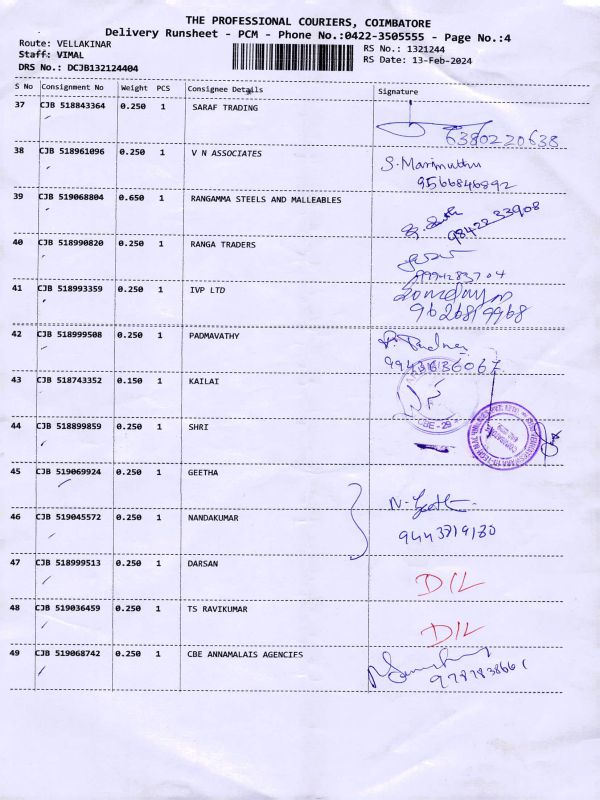 THE PROFESSIONAL COURIERS, COIMBATORE
Delivery Runsheet - PCM - Phone No.:0422-3505555 - Page No.:4
Route: VELLAKINAR
RS No.: 1321244
Staff: VIMAL
RS Date: 13-Feb-2024
DRS No.: DCJB132124404
S No Consignment No Weight PCS Consignee Details Signature
37 CJB 518843364 0.250 1 SARAF TRADING
6380220638
38 CJB 518961096 0.250 1 V N ASSOCIATES S. Marimuthu
9566846892
39 CJB 519068804 0.650 1 RANGAMMA STEELS AND MALLEABLES
9842233908
40 CJB 518990820 0.250 1 RANGA TRADERS
9994283704
41 CJB 518993359 0.250 1 IVP LTD
42 CJB 518999508 0.250 1 PADMAVATHY
9943636067
43 CJB 518743352 0.150 1 KAILAI
CBE-29
44 CJB 518899859 0.250 1 SHRI
45 CJB 519069924 0.250 1 GEETHA
N. Geetha
46 CJB 519045572 0.250 1 NANDAKUMAR
9443719130
47 CJB 518999513 0.250 1 DARSAN
D/L
48 CJB 519036459 0.250 1 TS RAVIKUMAR
D/L
49 CJB 519068742 0.250 1 CBE ANNAMALAIS AGENCIES
9787838661